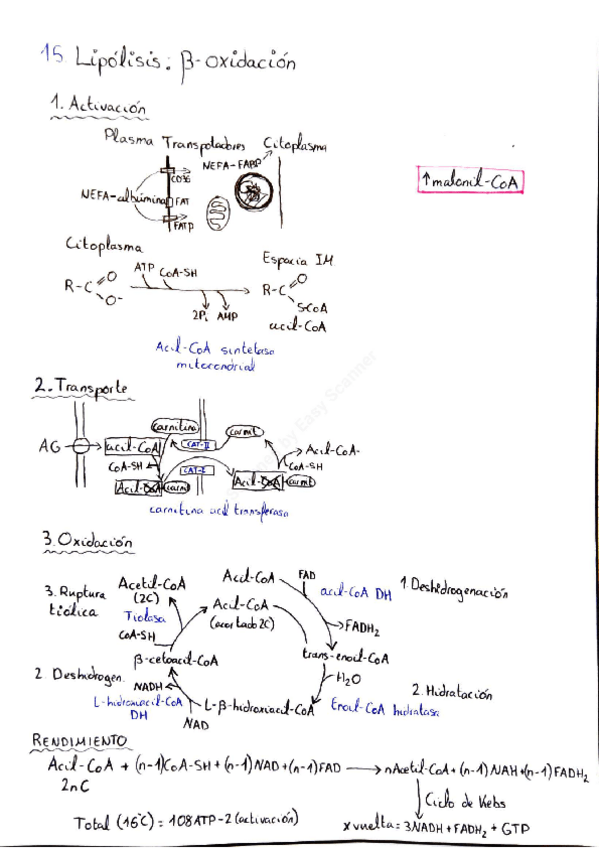 15. Lipólisis: β-oxidación
1. Activación
Plasma Transpotadores Citoplasma
NEFA-FABP
CD36
NEFA-albúmina FAT
FATP
↑malonil-CoA
Citoplasma
Espacio IM
ATP CoA-SH
R-C O O-
R-C O S-CoA
2Pi AMP
acil-CoA
Acil-CoA sintetasa
mitocondrial
2. Transporte
carnitina
carnit
AG acil-CoA CAT-II Acil-CoA
CoA-SH CAT-I CoA-SH
Acil-CoA carnit Acil-CoA carnit
carnitina acil transferasa
3. Oxidación
Acil-CoA FAD
acil-CoA DH
1. Deshidrogenación
FADH2
3. Ruptura
tiólica
Acetil-CoA
(2C)
Tiolasa
CoA-SH
Acil-CoA
(acortado 2C)
trans-enoil-CoA
H2O
2. Hidratación
Enoil-CoA hidratasa
β-cetoacil-CoA
2. Deshidrogen.
NADH
L-hidroxiacil-CoA
DH
NAD
L-β-hidroxiacil-CoA
RENDIMIENTO
Acil-CoA + (n-1)CoA-SH + (n-1)NAD + (n-1)FAD → nAcetil-CoA + (n-1)NAH + (n-1)FADH2
2nC
Ciclo de Krebs
Total (16C) = 108ATP-2 (activación)
x vuelta = 3NADH + FADH2 + GTP
by Easy Scanner